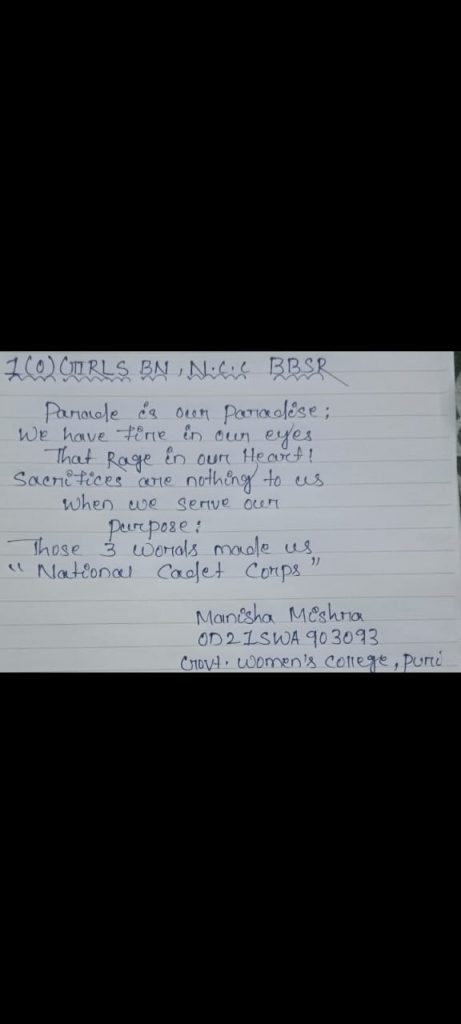 1(O) GIRLS BN, N.C.C BBSR
Parade is our Paradise;
We have fire in our eyes
That Rage in our Heart!
Sacrifices are nothing to us
when we serve our
purpose:
Those 3 words made us
"National Cadet Corps"
Manisha Mishra
OD21SWA903093
Govt. women's college, puri